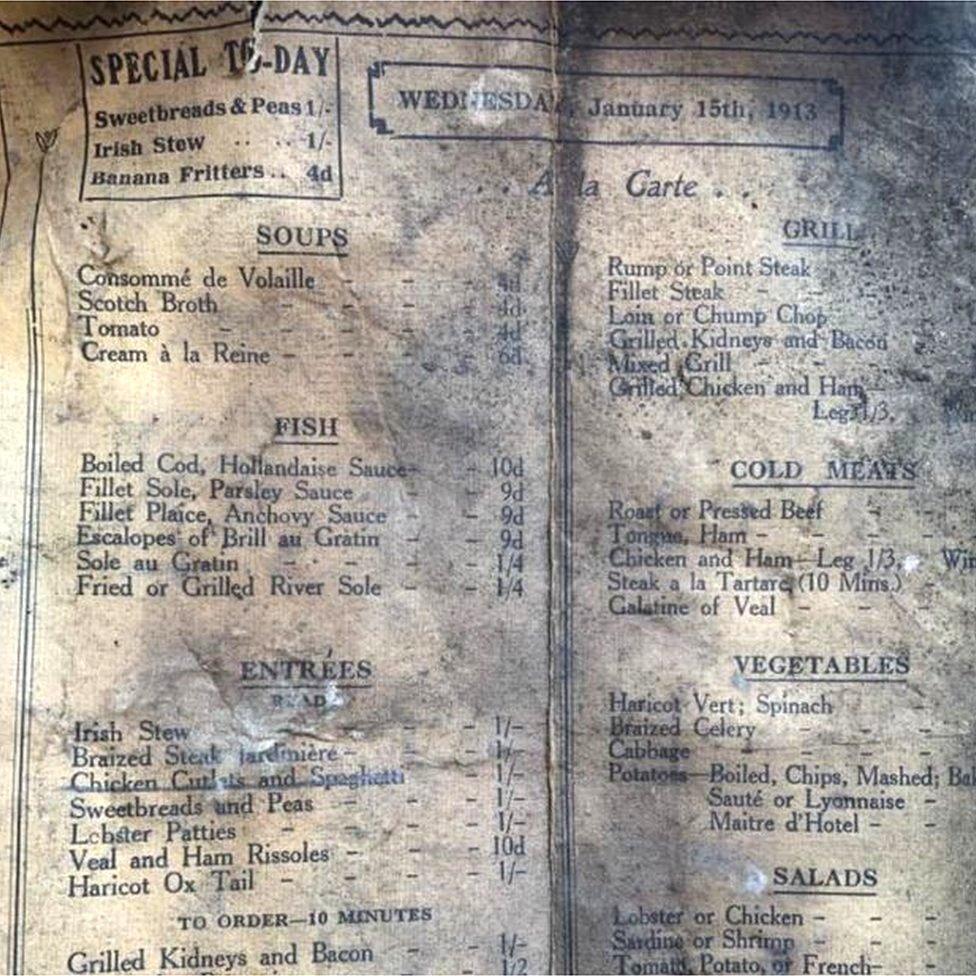 SPECIAL TO-DAY
Sweetbreads & Peas 1/-
Irish Stew .. .. 1/-
Banana Fritters .. 4d
WEDNESDAY, January 15th, 1913
. . A la Carte . .
SOUPS
Consommé de Volaille - - - 4d
Scotch Broth - - - - 4d
Tomato - - - - 4d
Cream à la Reine - - - - 6d
FISH
Boiled Cod, Hollandaise Sauce - - 10d
Fillet Sole, Parsley Sauce - - 9d
Fillet Plaice, Anchovy Sauce - - 9d
Escalopes of Brill au Gratin - - 9d
Sole au Gratin - - - - 1/4
Fried or Grilled River Sole - - 1/4
ENTRÉES
READY
Irish Stew - - - - 1/-
Braized Steak Jardinière - - - 1/-
Chicken Cutlets and Spaghetti - 1/-
Sweetbreads and Peas - - - 1/-
Lobster Patties - - - - 1/-
Veal and Ham Rissoles - - - 10d
Haricot Ox Tail - - - - 1/-
TO ORDER—10 MINUTES
Grilled Kidneys and Bacon - - 1/-
1/2
GRILL
Rump or Point Steak
Fillet Steak -
Loin or Chump Chop
Grilled Kidneys and Bacon
Mixed Grill - -
Grilled Chicken and Ham—
Leg 1/3.
COLD MEATS
Roast or Pressed Beef - -
Tongue, Ham - - - -
Chicken and Ham—Leg 1/3, Win
Steak a la Tartare (10 Mins.) -
Galatine of Veal - - -
VEGETABLES
Haricot Vert; Spinach - -
Braized Celery - - -
Cabbage - - - -
Potatoes—Boiled, Chips, Mashed; Bak
Sauté or Lyonnaise -
Maitre d'Hotel - -
SALADS
Lobster or Chicken - - -
Sardine or Shrimp - - -
Tomato, Potato, or French - -